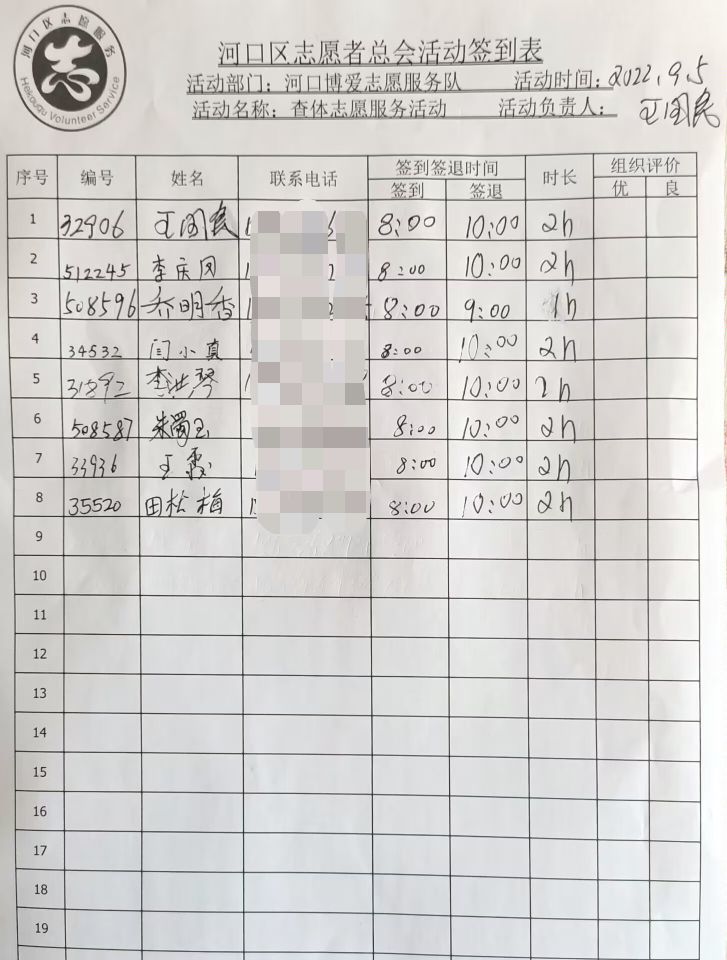 河口区志愿服务
志
Hekouqu Volunteer Service
河口区志愿者总会活动签到表
活动部门：河口博爱志愿服务队 活动时间：2022.9.5
活动名称：查体志愿服务活动 活动负责人：王国民
序号 编号 姓名 联系电话 签到签退时间 时长 组织评价
签到 签退 优 良
1 32906 王国民 8:00 10:00 2h
2 512245 李庆风 8:00 10:00 2h
3 508596 乔明香 8:00 9:00 1h
4 34532 闫小真 8:00 10:00 2h
5 李洪琴 8:00 10:00 2h
6 508587 朱蜀玉 8:00 10:00 2h
7 33936 王霞 8:00 10:00 2h
8 35520 田松梅 8:00 10:00 2h
9
10
11
12
13
14
15
16
17
18
19